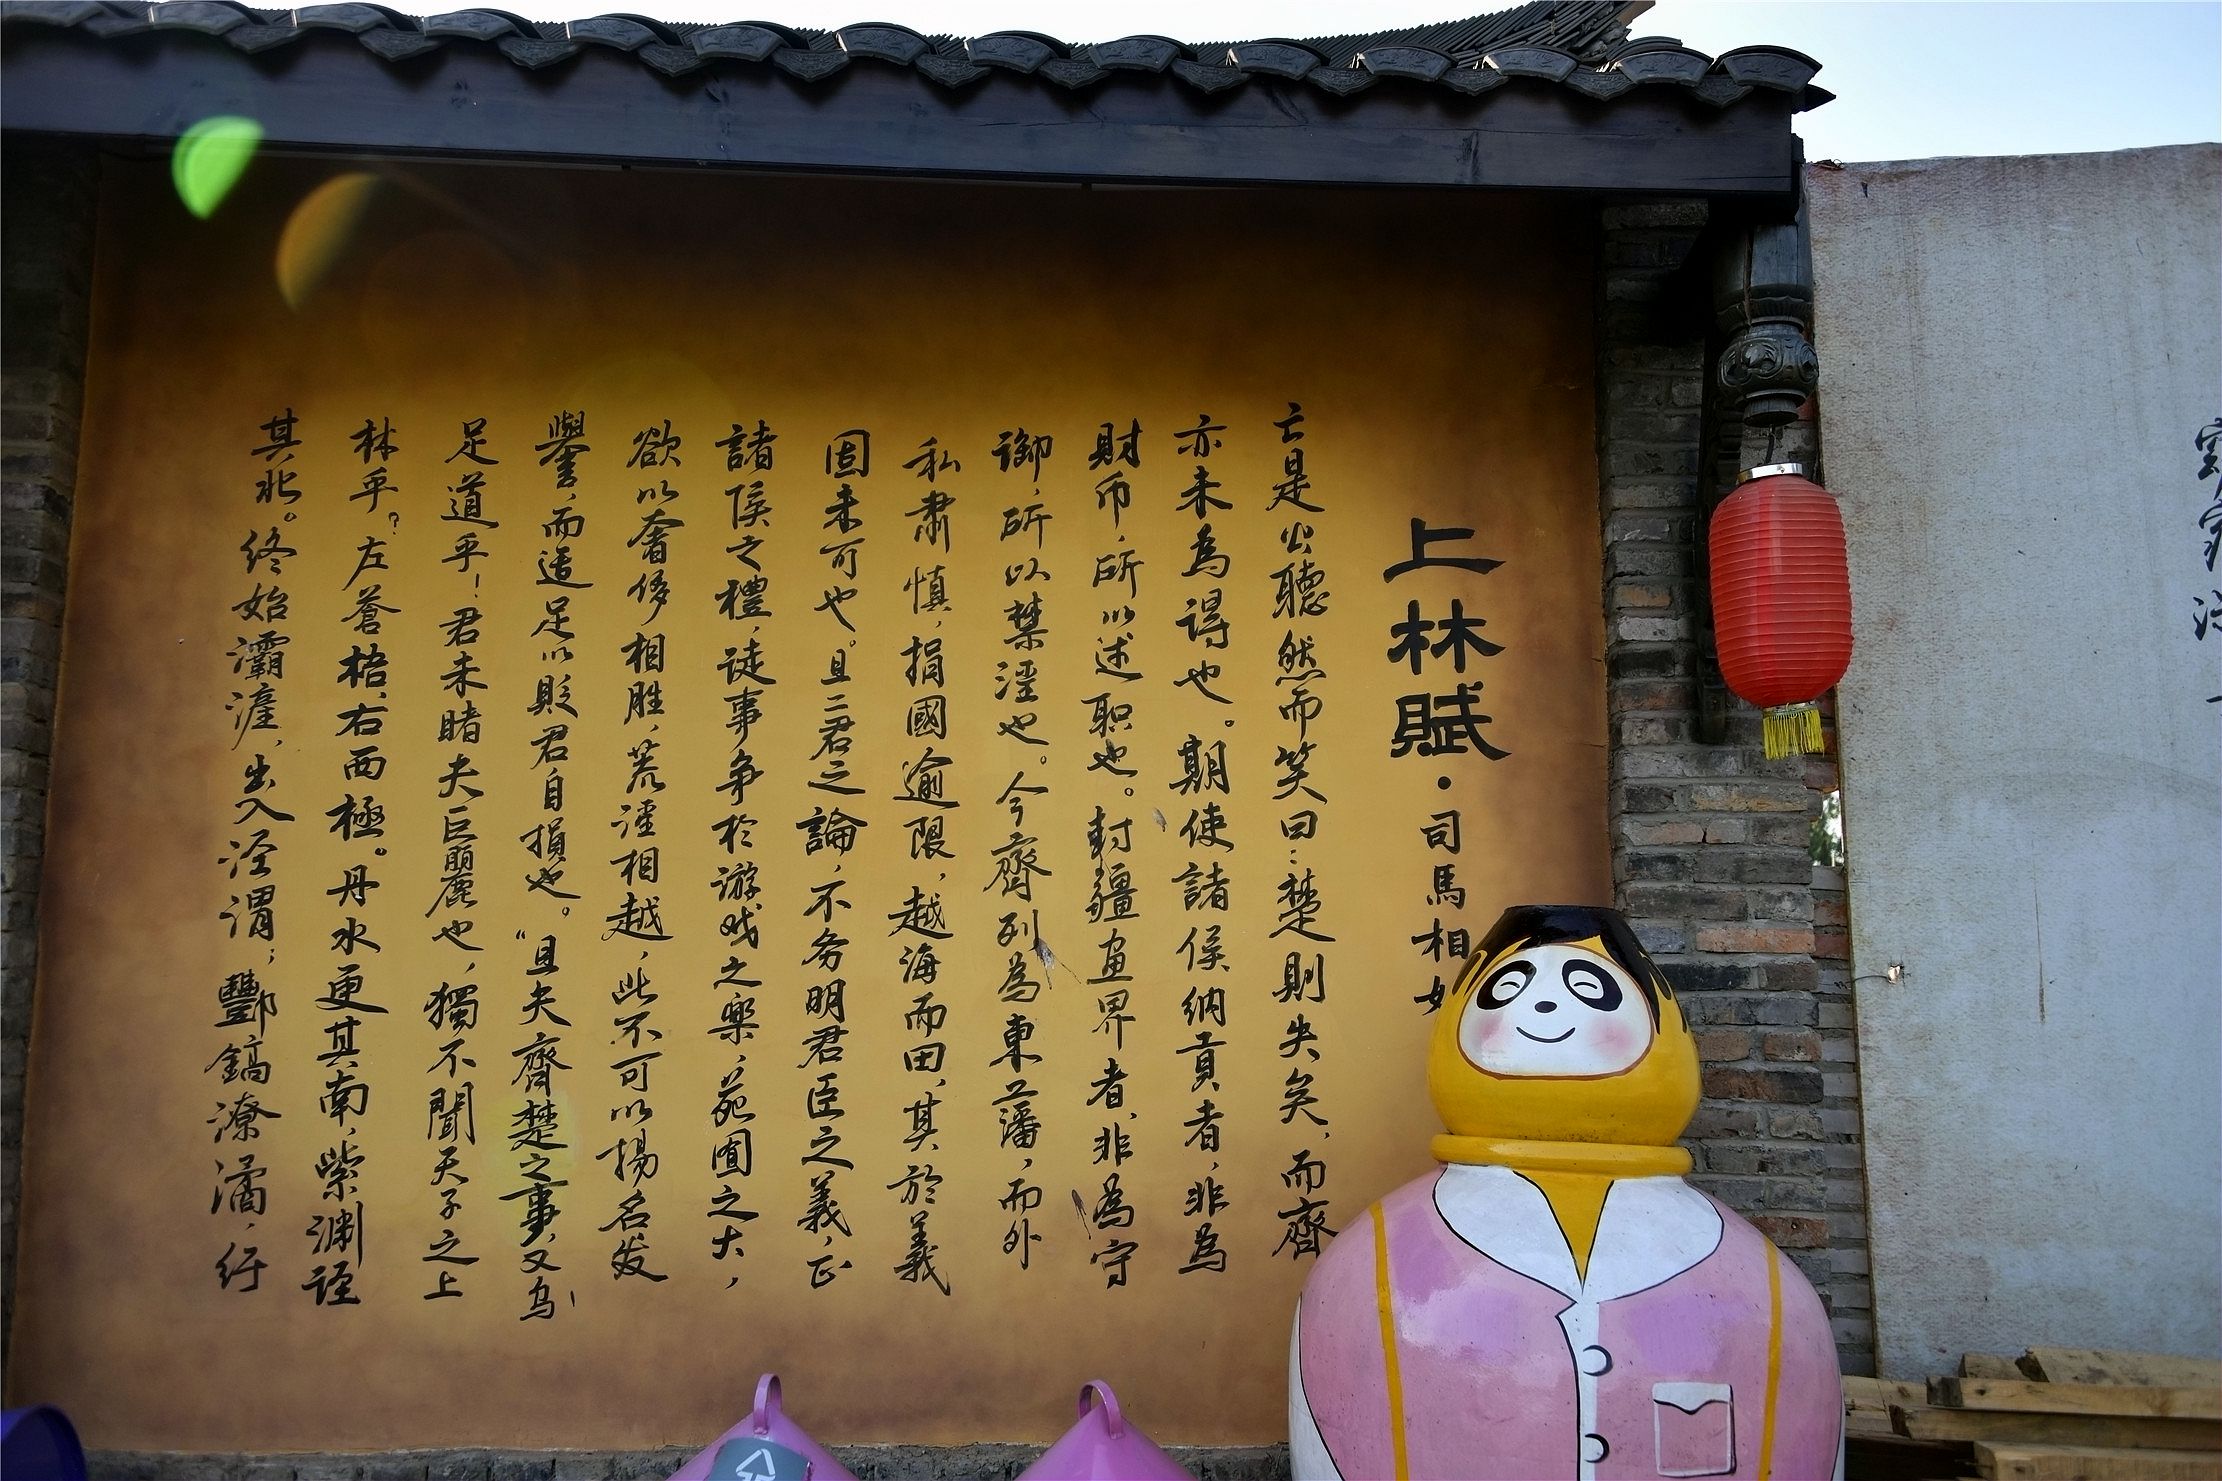 上林賦·司馬相如
亡是公聽然而笑曰：楚則失矣，而齊
亦未為得也。期使諸侯納貢者，非為
財币，所以述职也。封疆畫界者，非為守
御，所以禁淫也。今齊列為東藩，而外
私肅慎，捐國逾限，越海而田，其於義
固未可也。且二君之論，不务明君臣之義，正
諸侯之禮，徒事争於游戏之樂，苑囿之大，
欲以奢侈相胜，荒淫相越，此不可以揚名发
譽，而适足以貶君自損也。“且夫齊楚之事，又乌
足道乎！君未睹夫巨麗也，獨不聞天子之上
林乎？左蒼梧，右西極。丹水更其南，紫淵径
其北。终始灞滻，出入泾渭；酆鎬潦潏，纡